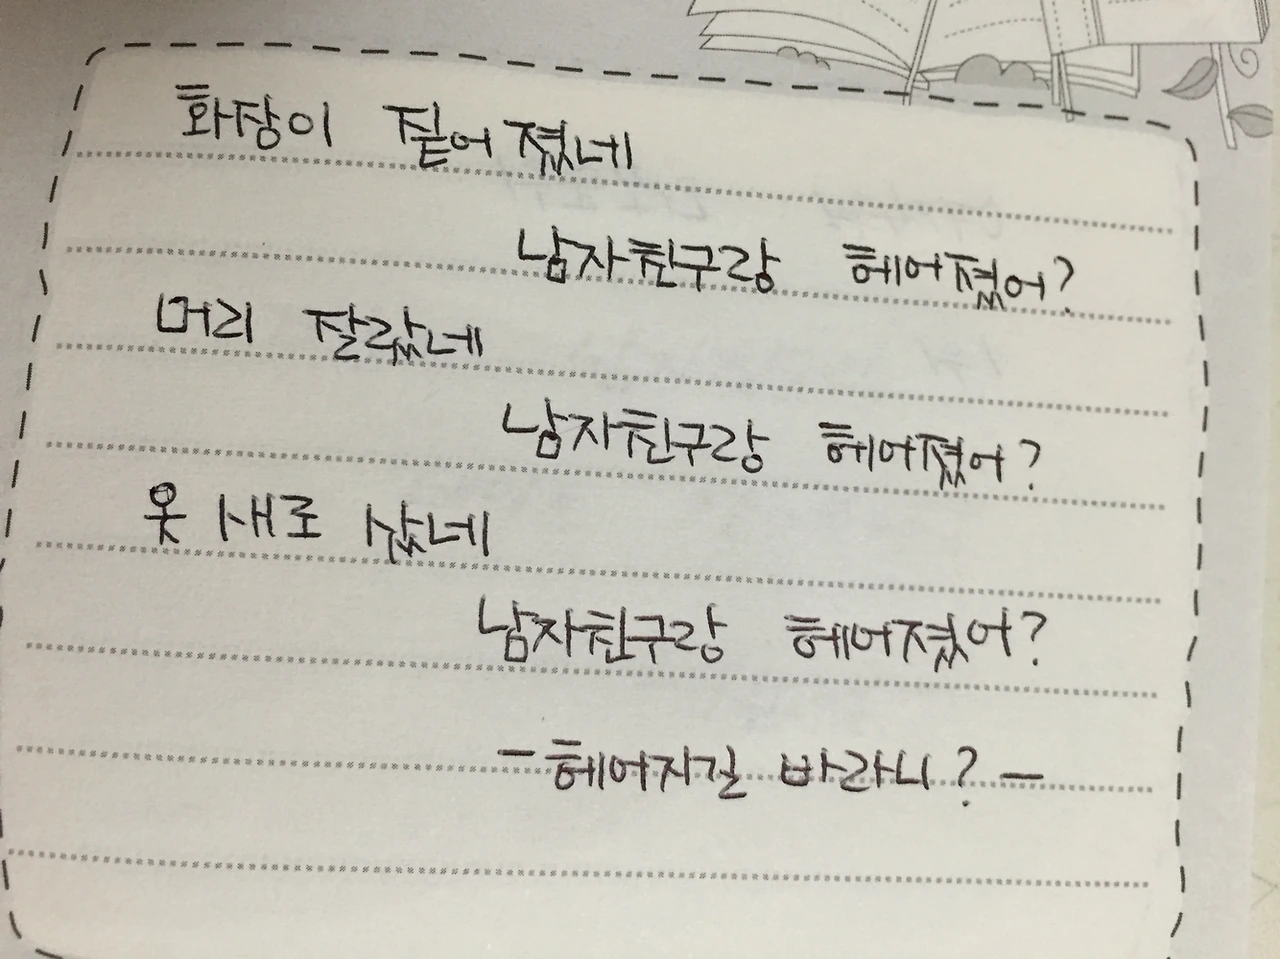 화장이 짙어 졌네
남자친구랑 헤어졌어?
머리 잘랐네
남자친구랑 헤어졌어?
옷 새로 샀네
남자친구랑 헤어졌어?
- 헤어지길 바라니? -